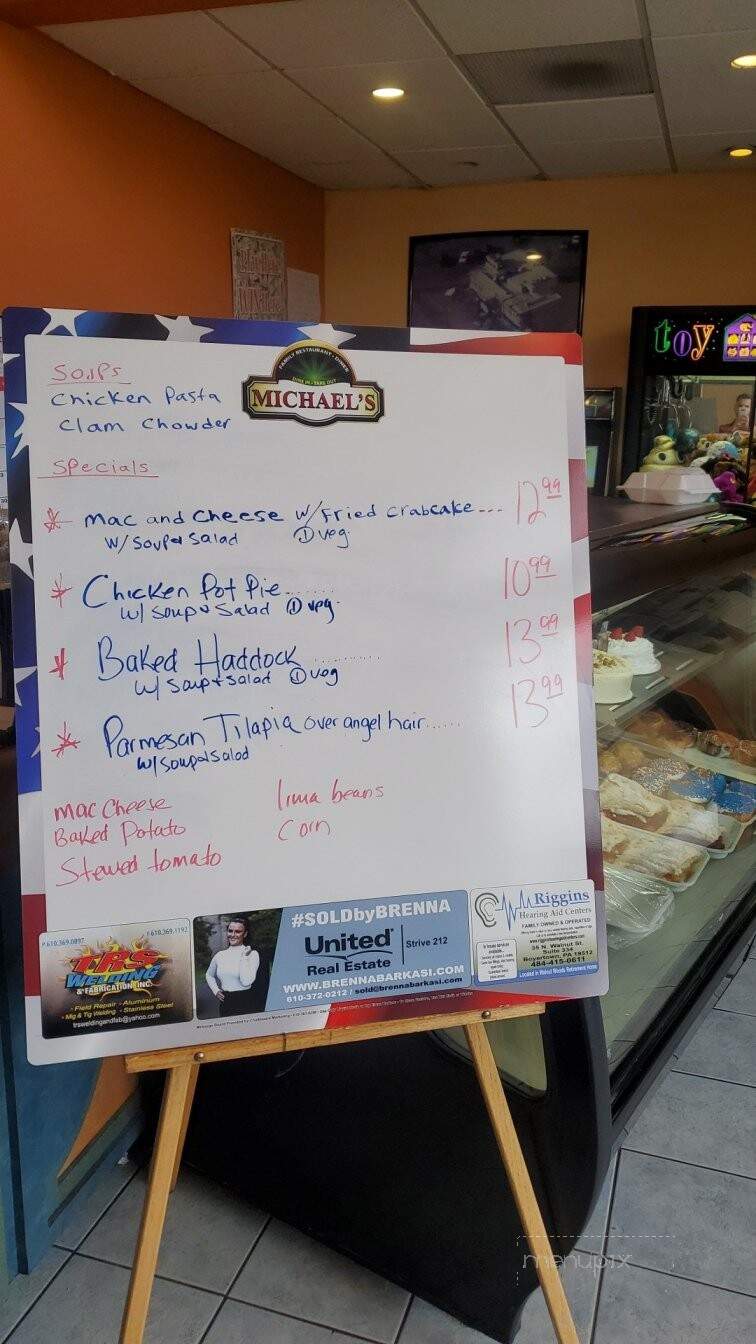 toy
FAMILY RESTAURANT • DINER
DINE IN • TAKE OUT
MICHAEL'S
Soups
Chicken Pasta
Clam Chowder
Specials
* Mac and Cheese w/Fried Crabcake --- 12 99
w/ Soup & Salad ① veg
* Chicken Pot Pie....... 10 99
w/ Soup & Salad ① veg.
* Baked Haddock .......... 13 99
w/ Soup & Salad ① veg
* Parmesan Tilapia over angel hair...... 13 99
w/ Soup & Salad
Mac Cheese
Baked Potato
Stewed tomato
lima beans
Corn
P 610.369.0897
F 610.369.1192
TRS
WELDING
& FABRICATION INC.
• Field Repair • Aluminum
• Mig & Tig Welding • Stainless Steel
trsweldingandfab@yahoo.com
#SOLDbyBRENNA
United
Real Estate
Strive 212
WWW.BRENNABARKASI.COM
610-372-0212 / sold@brennabarkasi.com
Riggins
Hearing Aid Centers
FAMILY OWNED & OPERATED
36 N. Walnut St.
Suite 334
Boyertown, PA 19512
484-415-0611
Located in Walnut Woods Retirement Home
menupix